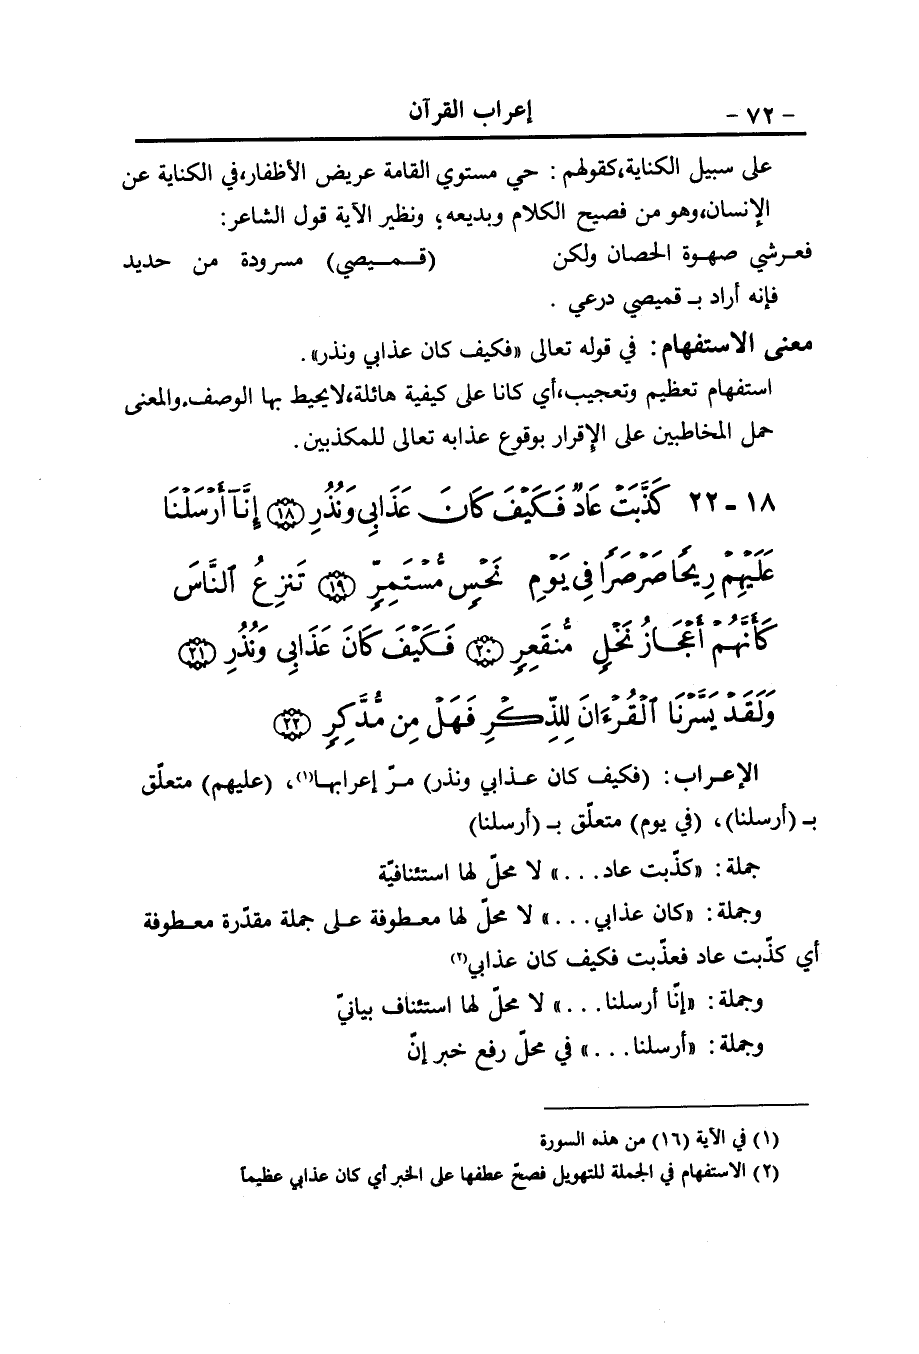 - ٧٢ - إعراب القرآن
على سبيل الكناية،كقولهم : حي مستوي القامة عريض الأظفار،في الكناية عن
الإنسان،وهو من فصيح الكلام وبديعه؛ ونظير الآية قول الشاعر :
فعرشي صهوة الحصان ولكن (قميصي) مسرودة من حديد
فإنه أراد بـ قميصي درعي .
معنى الاستفهام : في قوله تعالى «فكيف كان عذابي ونذر» .
استفهام تعظيم وتعجيب،أي كانا على كيفية هائلة،لايحيط بها الوصف.والمعنى
حمل المخاطبين على الإقرار بوقوع عذابه تعالى للمكذبين .
١٨ - ٢٢ كَذَّبَتْ عَادٌ فَكَيْفَ كَانَ عَذَابِى وَنُذُرِ ١٨ إِنَّآ أَرْسَلْنَا
عَلَيْهِمْ رِيحًا صَرْصَرًا فِى يَوْمِ نَحْسٍ مُّسْتَمِرٍّ ١٩ تَنزِعُ ٱلنَّاسَ
كَأَنَّهُمْ أَعْجَازُ نَخْلٍ مُّنقَعِرٍ ٢٠ فَكَيْفَ كَانَ عَذَابِى وَنُذُرِ ٢١
وَلَقَدْ يَسَّرْنَا ٱلْقُرْءَانَ لِلذِّكْرِ فَهَلْ مِن مُّدَّكِرٍ ٢٢
الإعراب : (فكيف كان عذابي ونذر) مرّ إعرابها(١)، (عليهم) متعلّق
بـ (أرسلنا)، (في يوم) متعلّق بـ (أرسلنا)
جملة : «كذّبت عاد. . .» لا محلّ لها استئنافيّة
وجملة : «كان عذابي. . .» لا محلّ لها معطوفة على جملة مقدّرة معطوفة
أي كذّبت عاد فعذّبت فكيف كان عذابي(٢)
وجملة : «إنّا أرسلنا. . .» لا محلّ لها استئناف بيانيّ
وجملة : «أرسلنا. . .» في محلّ رفع خبر إنّ
(١) في الآية (١٦) من هذه السورة
(٢) الاستفهام في الجملة للتهويل فصحّ عطفها على الخبر أي كان عذابي عظيماً